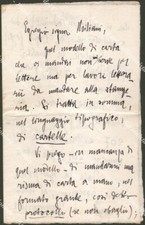 Egregio signor Molinari,
quel modello di carta
che vi mandai non serve per
lettere ma per lavori letterari
da mandare alla stampe-
ria. Si tratta in somma,
nel linguaggio tipografico,
di cartelle.
Vi prego - in mancanza di
quel modello - di mandarmi una
risma di carta a mano, nel
formato grande, così detto
protocollo (se non sbaglio),